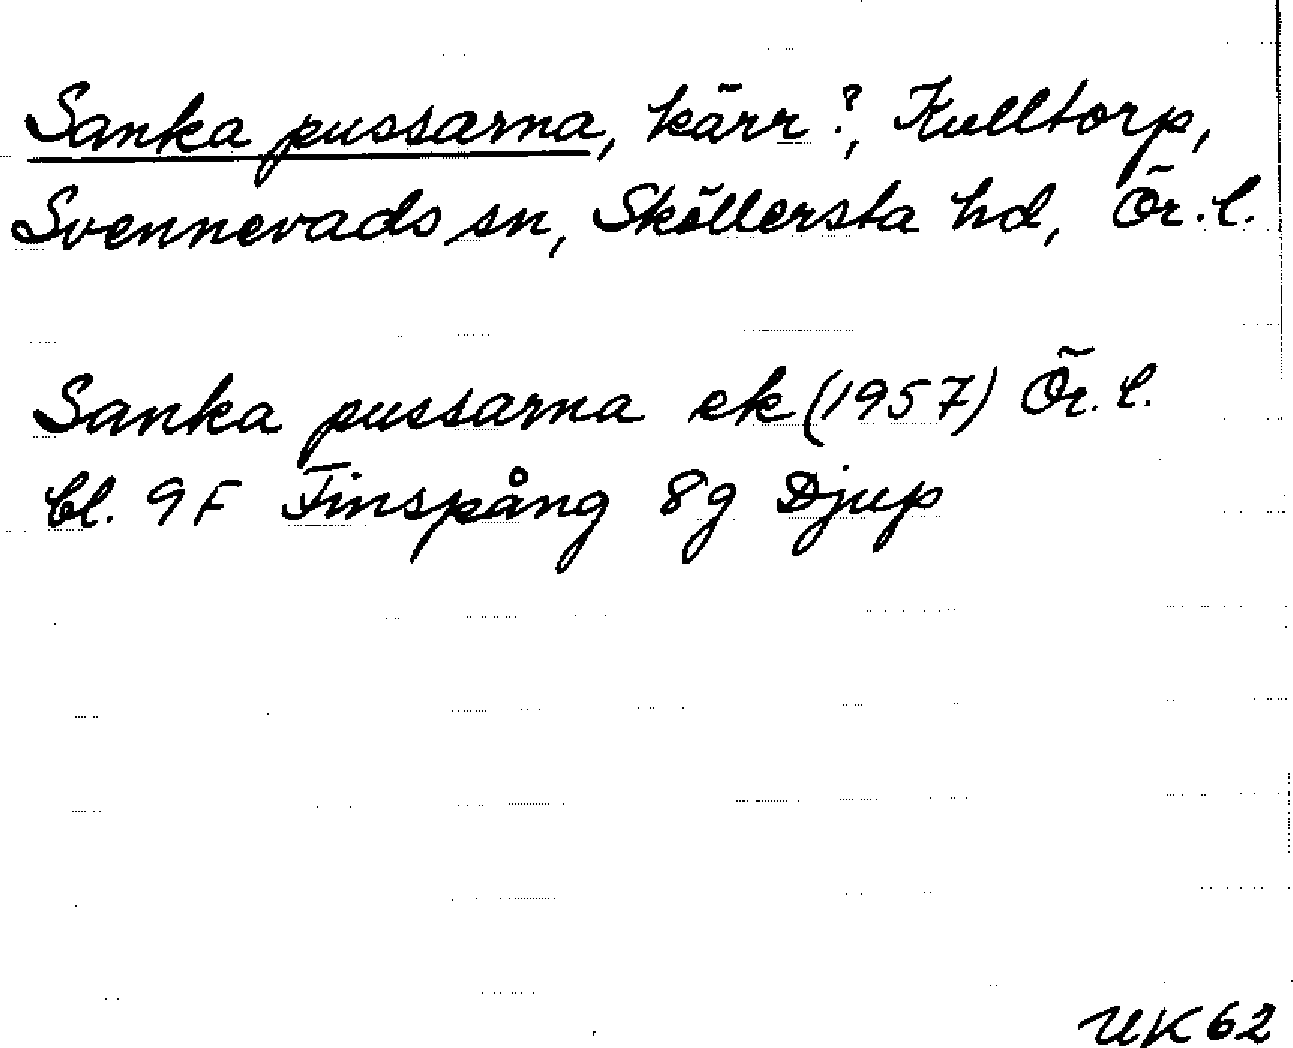 Sanka pussarna, kärr?, Kulltorp,
Svennevads sn, Sköllersta hd, Ör.l.
Sanka pussarna ek (1957) Ör.l.
bl. 9F Finspång 8g Djup
UK62